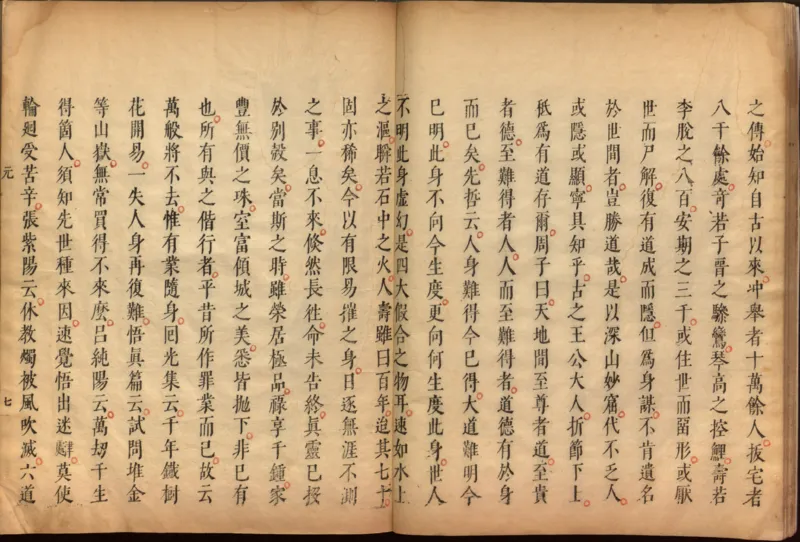 之傳始知自古以來冲舉者十萬餘人拔宅者
八千餘處奇若子晉之驂鸞琴高之控鯉壽若
李脫之八百安期之三千或住世而留形或厭
世而尸解復有道成而隱但爲身謀不肯遺名
於世間者豈勝道哉是以深山妙窟代不乏人
或隱或顯寧具知乎古之王公大人折節下士
秪爲有道存爾周子曰天地間至尊者道至貴
者德至難得者人人而至難得者道德有於身
而已矣先哲云人身難得今已得大道難明今
已明此身不向今生度更向何生度此身世人
不明此身虛幻是四大假合之物耳速如水上
之漚瞬若石中之火人壽雖曰百年迨其七十
固亦稀矣今以有限易摧之身日逐無涯不測
之事一息不來倏然長往命未告終眞靈已投
於別殼矣當斯之時雖榮居極品祿享千鍾家
豐無價之珠室富傾城之美悉皆拋下非已有
也所有與之偕行者平昔所作罪業而已故云
萬般將不去惟有業隨身回光集云千年鐵樹
花開易一失人身再復難悟眞篇云試問堆金
等山嶽無常買得不來麽呂純陽云萬劫千生
得箇人須知先世種來因速覺悟出迷肆莫使
輪廻受苦辛張紫陽云休教燭被風吹滅六道
元 七